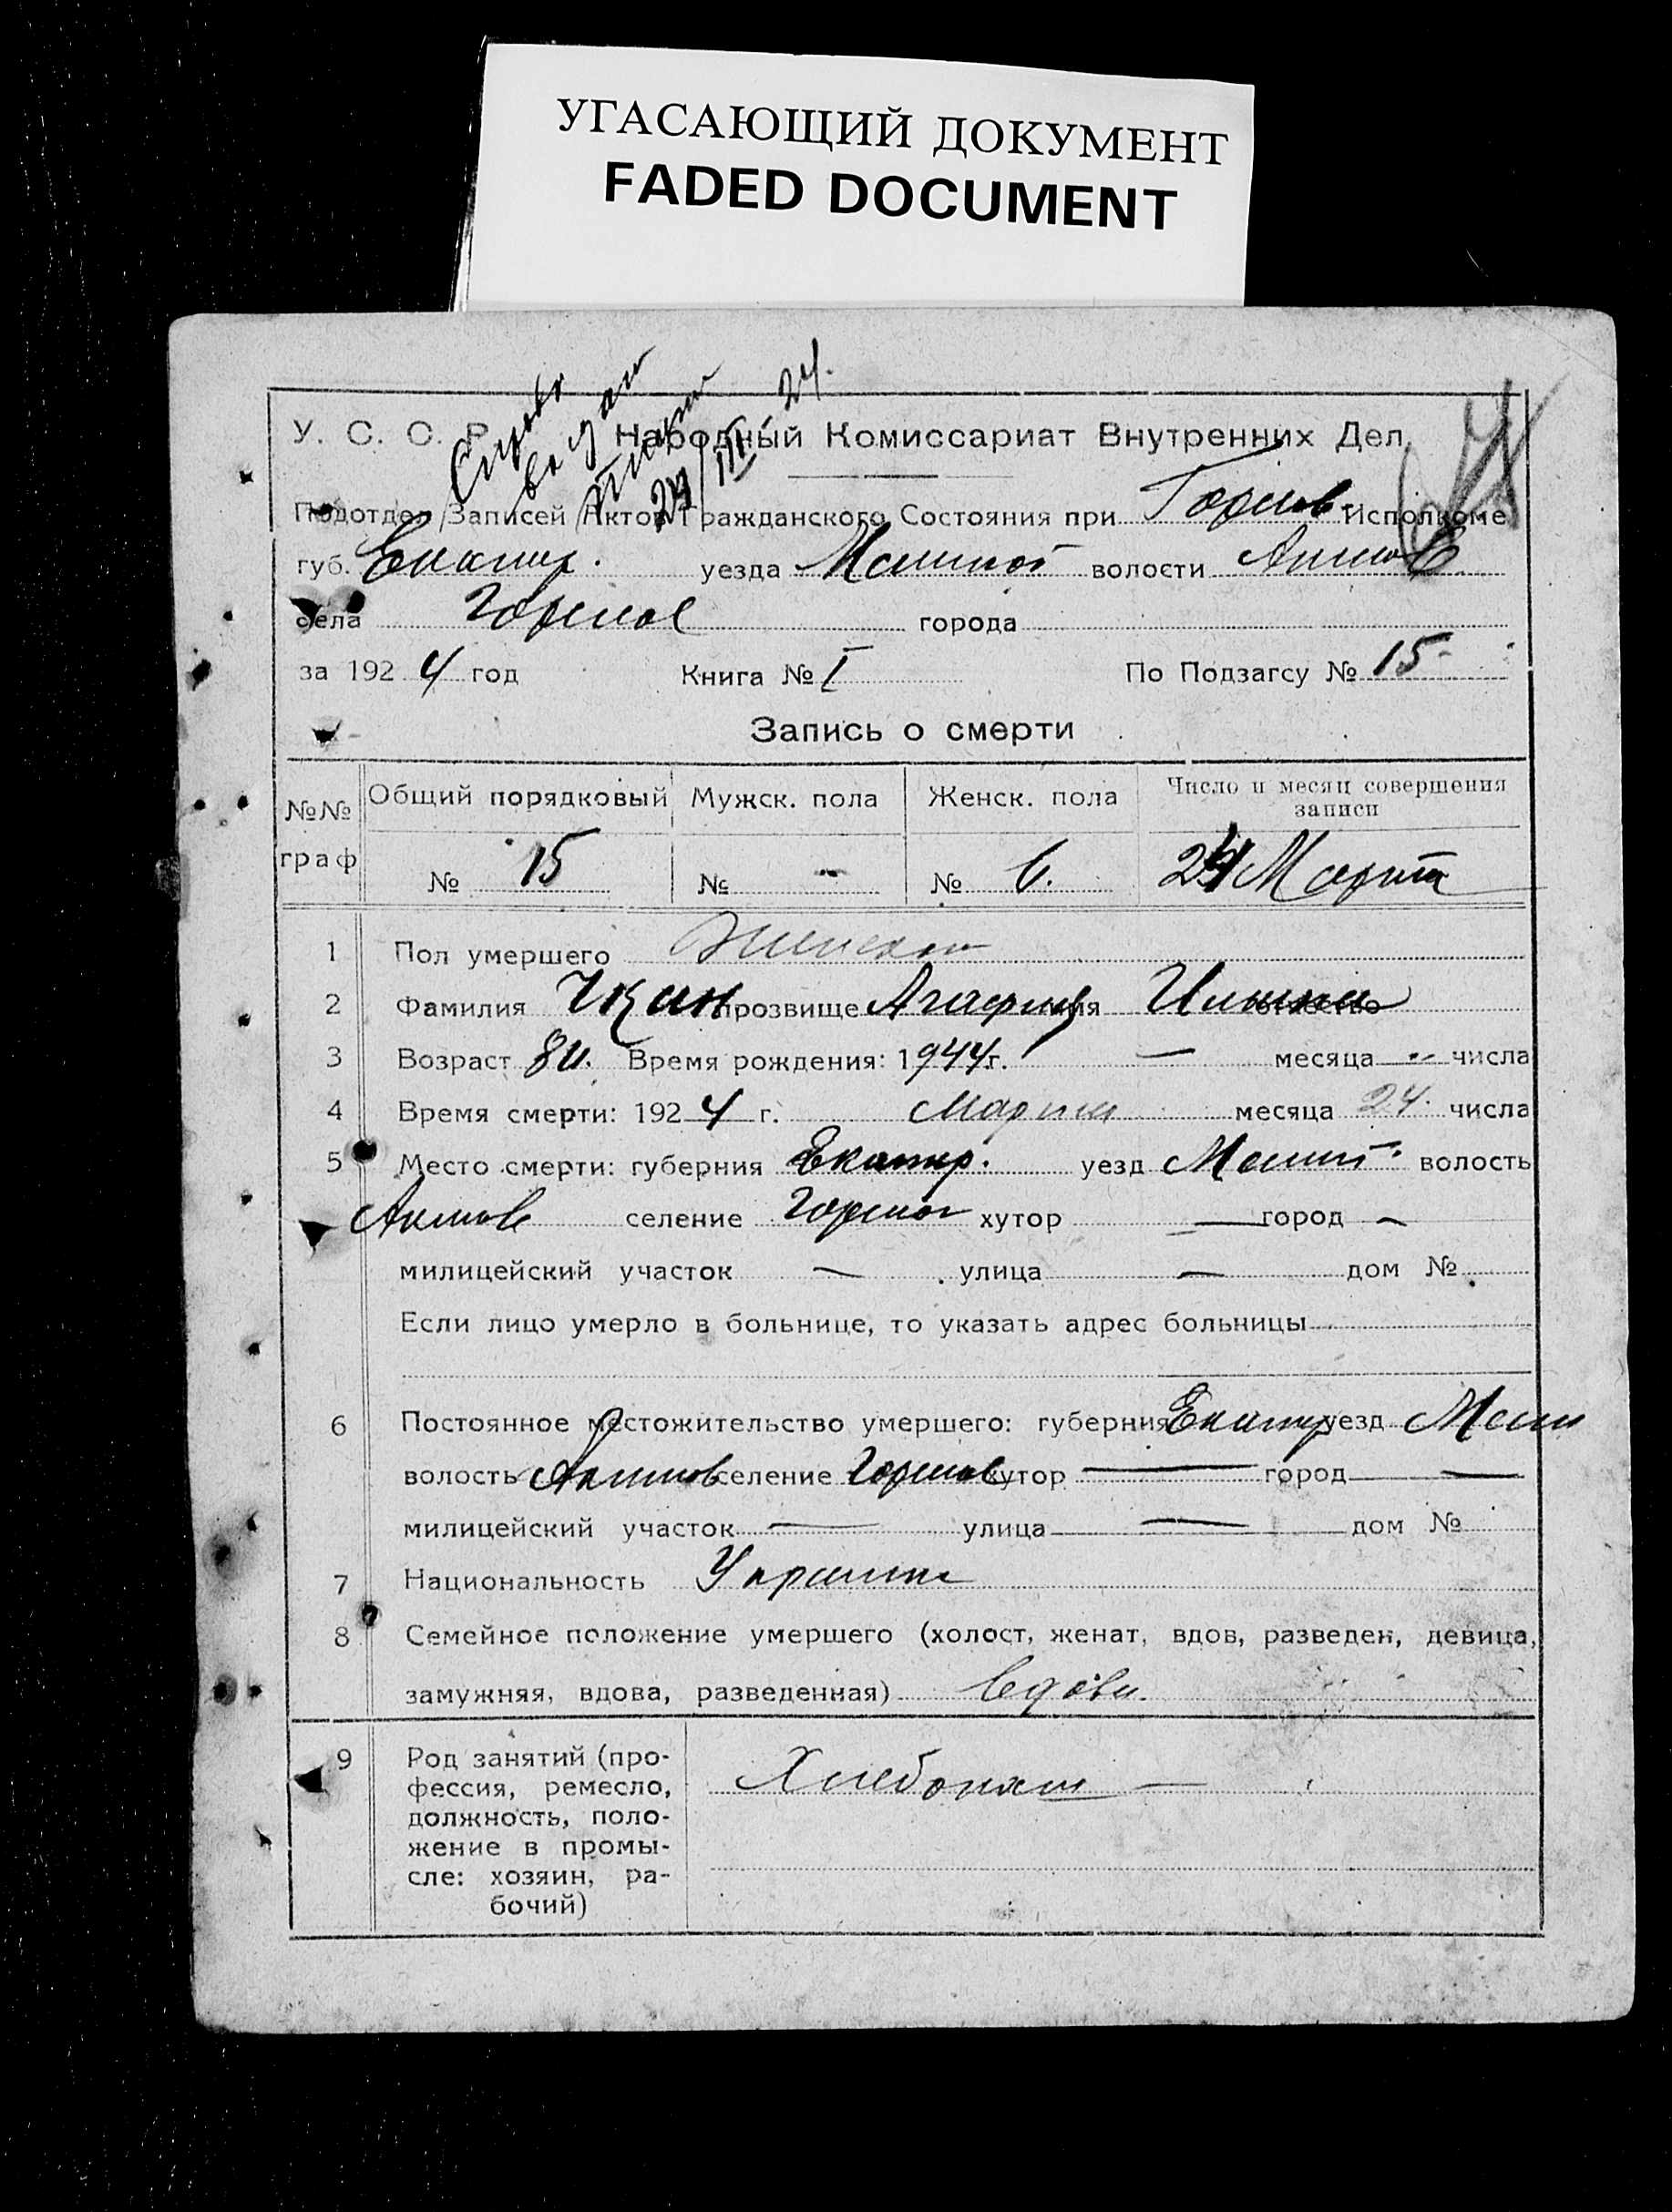 УГАСАЮЩИЙ ДОКУМЕНТ
FADED DOCUMENT
24/III 24.
У. С. С. Р. Народный Комиссариат Внутренних Дел.
Подотдел Записей Актов Гражданского Состояния при Исполкоме
губ. Екатер. уезда волости
села города
за 1924 год Книга № I По Подзагсу № 15
Запись о смерти
№№ граф Общий порядковый Мужск. пола Женск. пола Число и месяц совершения записи
№ 15 № - № 6. 24 Марта
1 Пол умершего Женский
2 Фамилия прозвище Агафия имя отчество
3 Возраст 80. Время рождения: 1944г. — месяца - числа
4 Время смерти: 1924 г. Марта месяца 24 числа
5 Место смерти: губерния Екатер. уезд Мелит. волость
Акимов селение хутор — город —
милицейский участок — улица — дом №
Если лицо умерло в больнице, то указать адрес больницы
6 Постоянное местожительство умершего: губерния Екатер уезд Мели
волость Акимов селение хутор — город —
милицейский участок — улица — дом №
7 Национальность
8 Семейное положение умершего (холост, женат, вдов, разведен, девица,
замужняя, вдова, разведенная) вдова.
9 Род занятий (про-
фессия, ремесло,
должность, поло-
жение в промы-
сле: хозяин, ра-
бочий)
Хлебопаш —